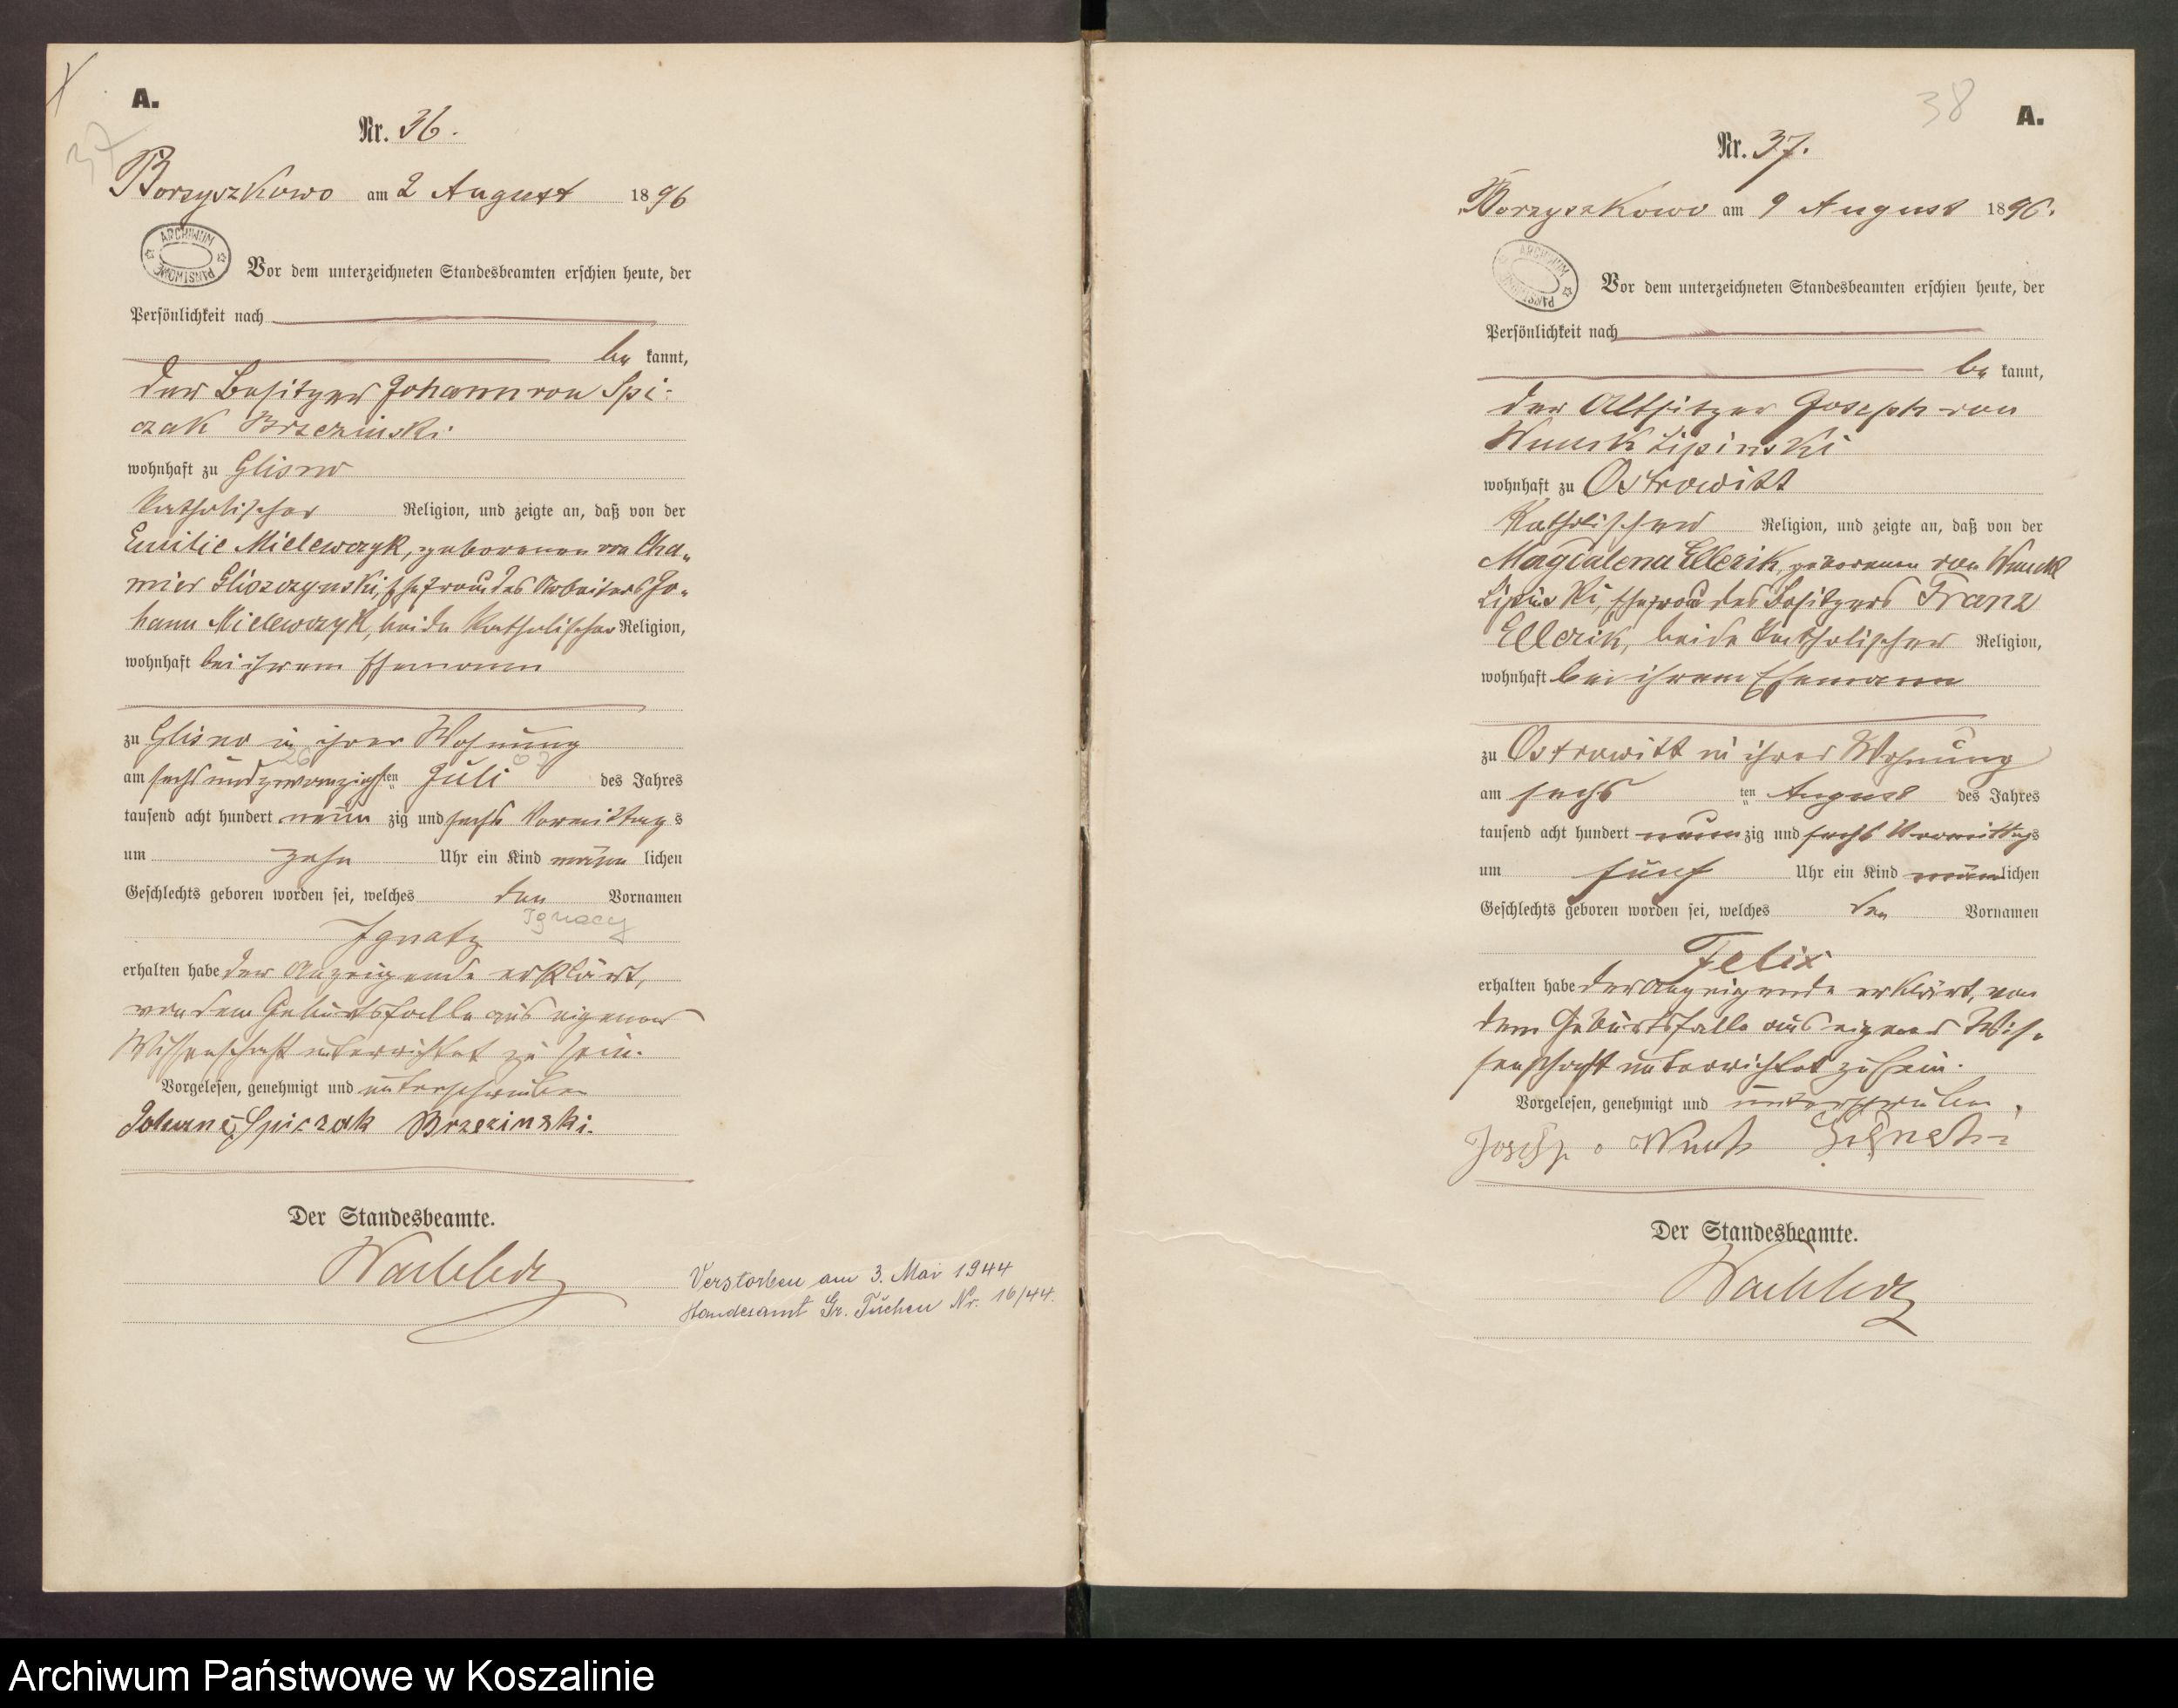 A.
37
Nr. 36.
Borzyszkowo am 2 August 1896
ARCHIWUM PAŃSTWOWE
Vor dem unterzeichneten Standesbeamten erschien heute, der
Persönlichkeit nach
be kannt,
der Besitzer Johann von Spi-
czak Brzezinski
wohnhaft zu Glisno
katholischer Religion, und zeigte an, daß von der
Emilie Mielewczyk, geborenen von Cha-
mier Gliszczynski, Ehefrau des Arbeiters Jo-
hann Mielewczyk, beide katholischer Religion,
wohnhaft bei ihrem Ehemann
zu Glisno in ihrer Wohnung
26
am sechsundzwanzigsten Juli des Jahres
tausend acht hundert neun zig und sechs Vormittags
um zehn Uhr ein Kind männ lichen
Geschlechts geboren worden sei, welches den Vornamen
Ignacy
Ignatz
erhalten habe der Anzeigende erklärt,
von dem Geburtsfalle aus eigener
Wissenschaft unterrichtet zu sein.
Vorgelesen, genehmigt und unterschrieben
Spiczak Brzezinski.
Der Standesbeamte.
Verstorben am 3. Mai 1944
Standesamt Gr. Tuchen Nr. 16/44.
38
A.
Nr. 37.
Borzyszkowo am 9 August 1896.
ARCHIWUM PAŃSTWOWE
Vor dem unterzeichneten Standesbeamten erschien heute, der
Persönlichkeit nach
be kannt,
der Altsitzer Joseph von
Wnuck Lipinski
wohnhaft zu Ostrowitt
katholischer Religion, und zeigte an, daß von der
Magdalena Ellerik, geborenen von Wnuck
Lipinski, Ehefrau des Besitzers Franz
Ellerik, beide katholischer Religion,
wohnhaft bei ihrem Ehemann
zu Ostrowitt in ihrer Wohnung
am sechs ten August des Jahres
tausend acht hundert neun zig und sechs Vormittags
um fünf Uhr ein Kind männlichen
Geschlechts geboren worden sei, welches den Vornamen
Felix
erhalten habe der Anzeigende erklärt, von
dem Geburtsfalle aus eigener Wis-
senschaft unterrichtet zu sein.
Vorgelesen, genehmigt und unterschrieben.
Der Standesbeamte.
Archiwum Państwowe w Koszalinie